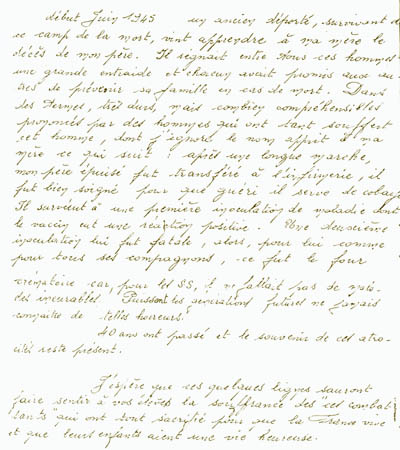 début Juin 1945 un ancien déporté, survivant d
ce camp de la mort, vint apprendre à ma mère le
décès de mon père. Il régnait entre tous ces hommes
une grande entraide et chacun avait promis aux au-
tres de prévenir sa famille en cas de mort. Dans
des termes, très durs, mais combien compréhensibles
prononcés par des hommes qui ont tant souffert
cet homme, dont j'ignore le nom apprit à ma
mère ce qui suit : après une longue marche,
mon père épuisé fut transféré à l'infirmerie, il
fut bien soigné pour que guéri il serve de cobaye
Il survient à une première inoculation de maladie dont
le vaccin eut une réaction positive. Une deuxième
inoculation lui fut fatale, alors, pour lui comme
pour tous ses compagnons, ce fut le four
crématoire car, pour les SS, il ne fallait pas de mala-
des incurables. Puissent les générations futures ne jamais
connaître de telles horreurs.
40 ans ont passé et le souvenir de ces atro-
cités reste présent.
J'espère que ces quelques lignes sauront
faire sentir à vos élèves la souffrance des "ces combat
tants" qui ont tout sacrifié pour que la France vive
et que leurs enfants aient une vie heureuse.